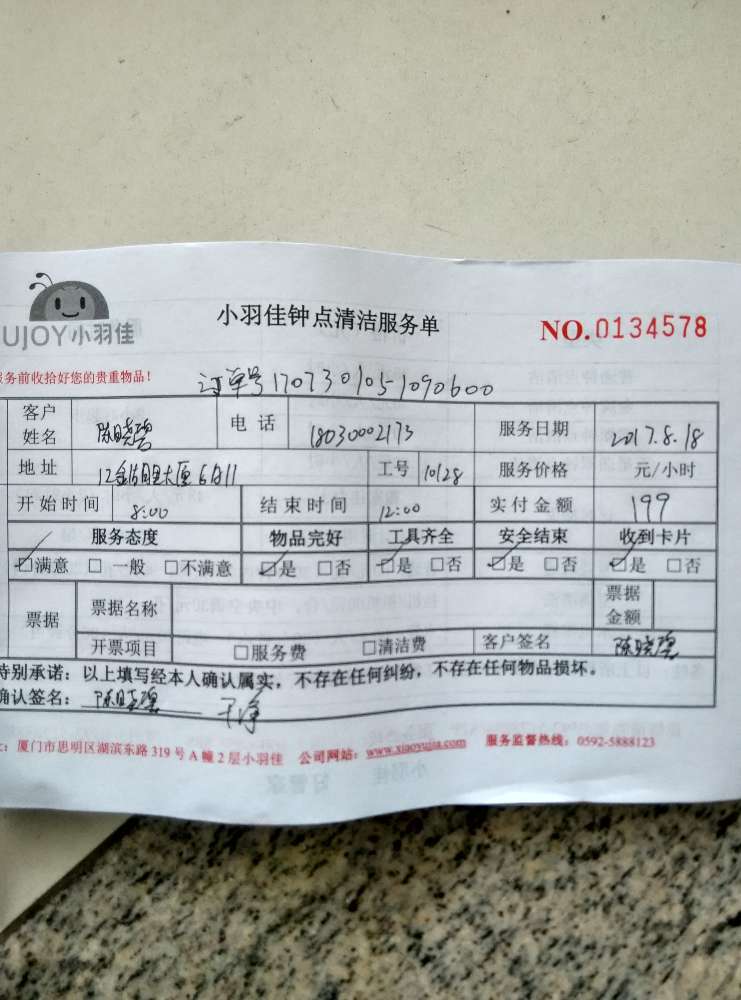 UJOY小羽佳
小羽佳钟点清洁服务单
NO.0134578
服务前收拾好您的贵重物品！
订单号1707301051090600
客户姓名 陈晓碧 电话 18030002173 服务日期 2017.8.18
地址 大厦 工号 10128 服务价格 元/小时
开始时间 8:00 结束时间 12:00 实付金额 199
服务态度 物品完好 工具齐全 安全结束 收到卡片
☑满意 □一般 □不满意 ☑是 □否 ☑是 □否 ☑是 □否 ☑是 □否
票据 票据名称 票据金额
开票项目 □服务费 □清洁费 客户签名 陈晓碧
特别承诺：以上填写经本人确认属实，不存在任何纠纷，不存在任何物品损坏。
确认签名：陈晓碧 干净
：厦门市思明区湖滨东路319号A幢2层小羽佳 公司网站：www.xiaoyujia.com 服务监督热线：0592-5888123